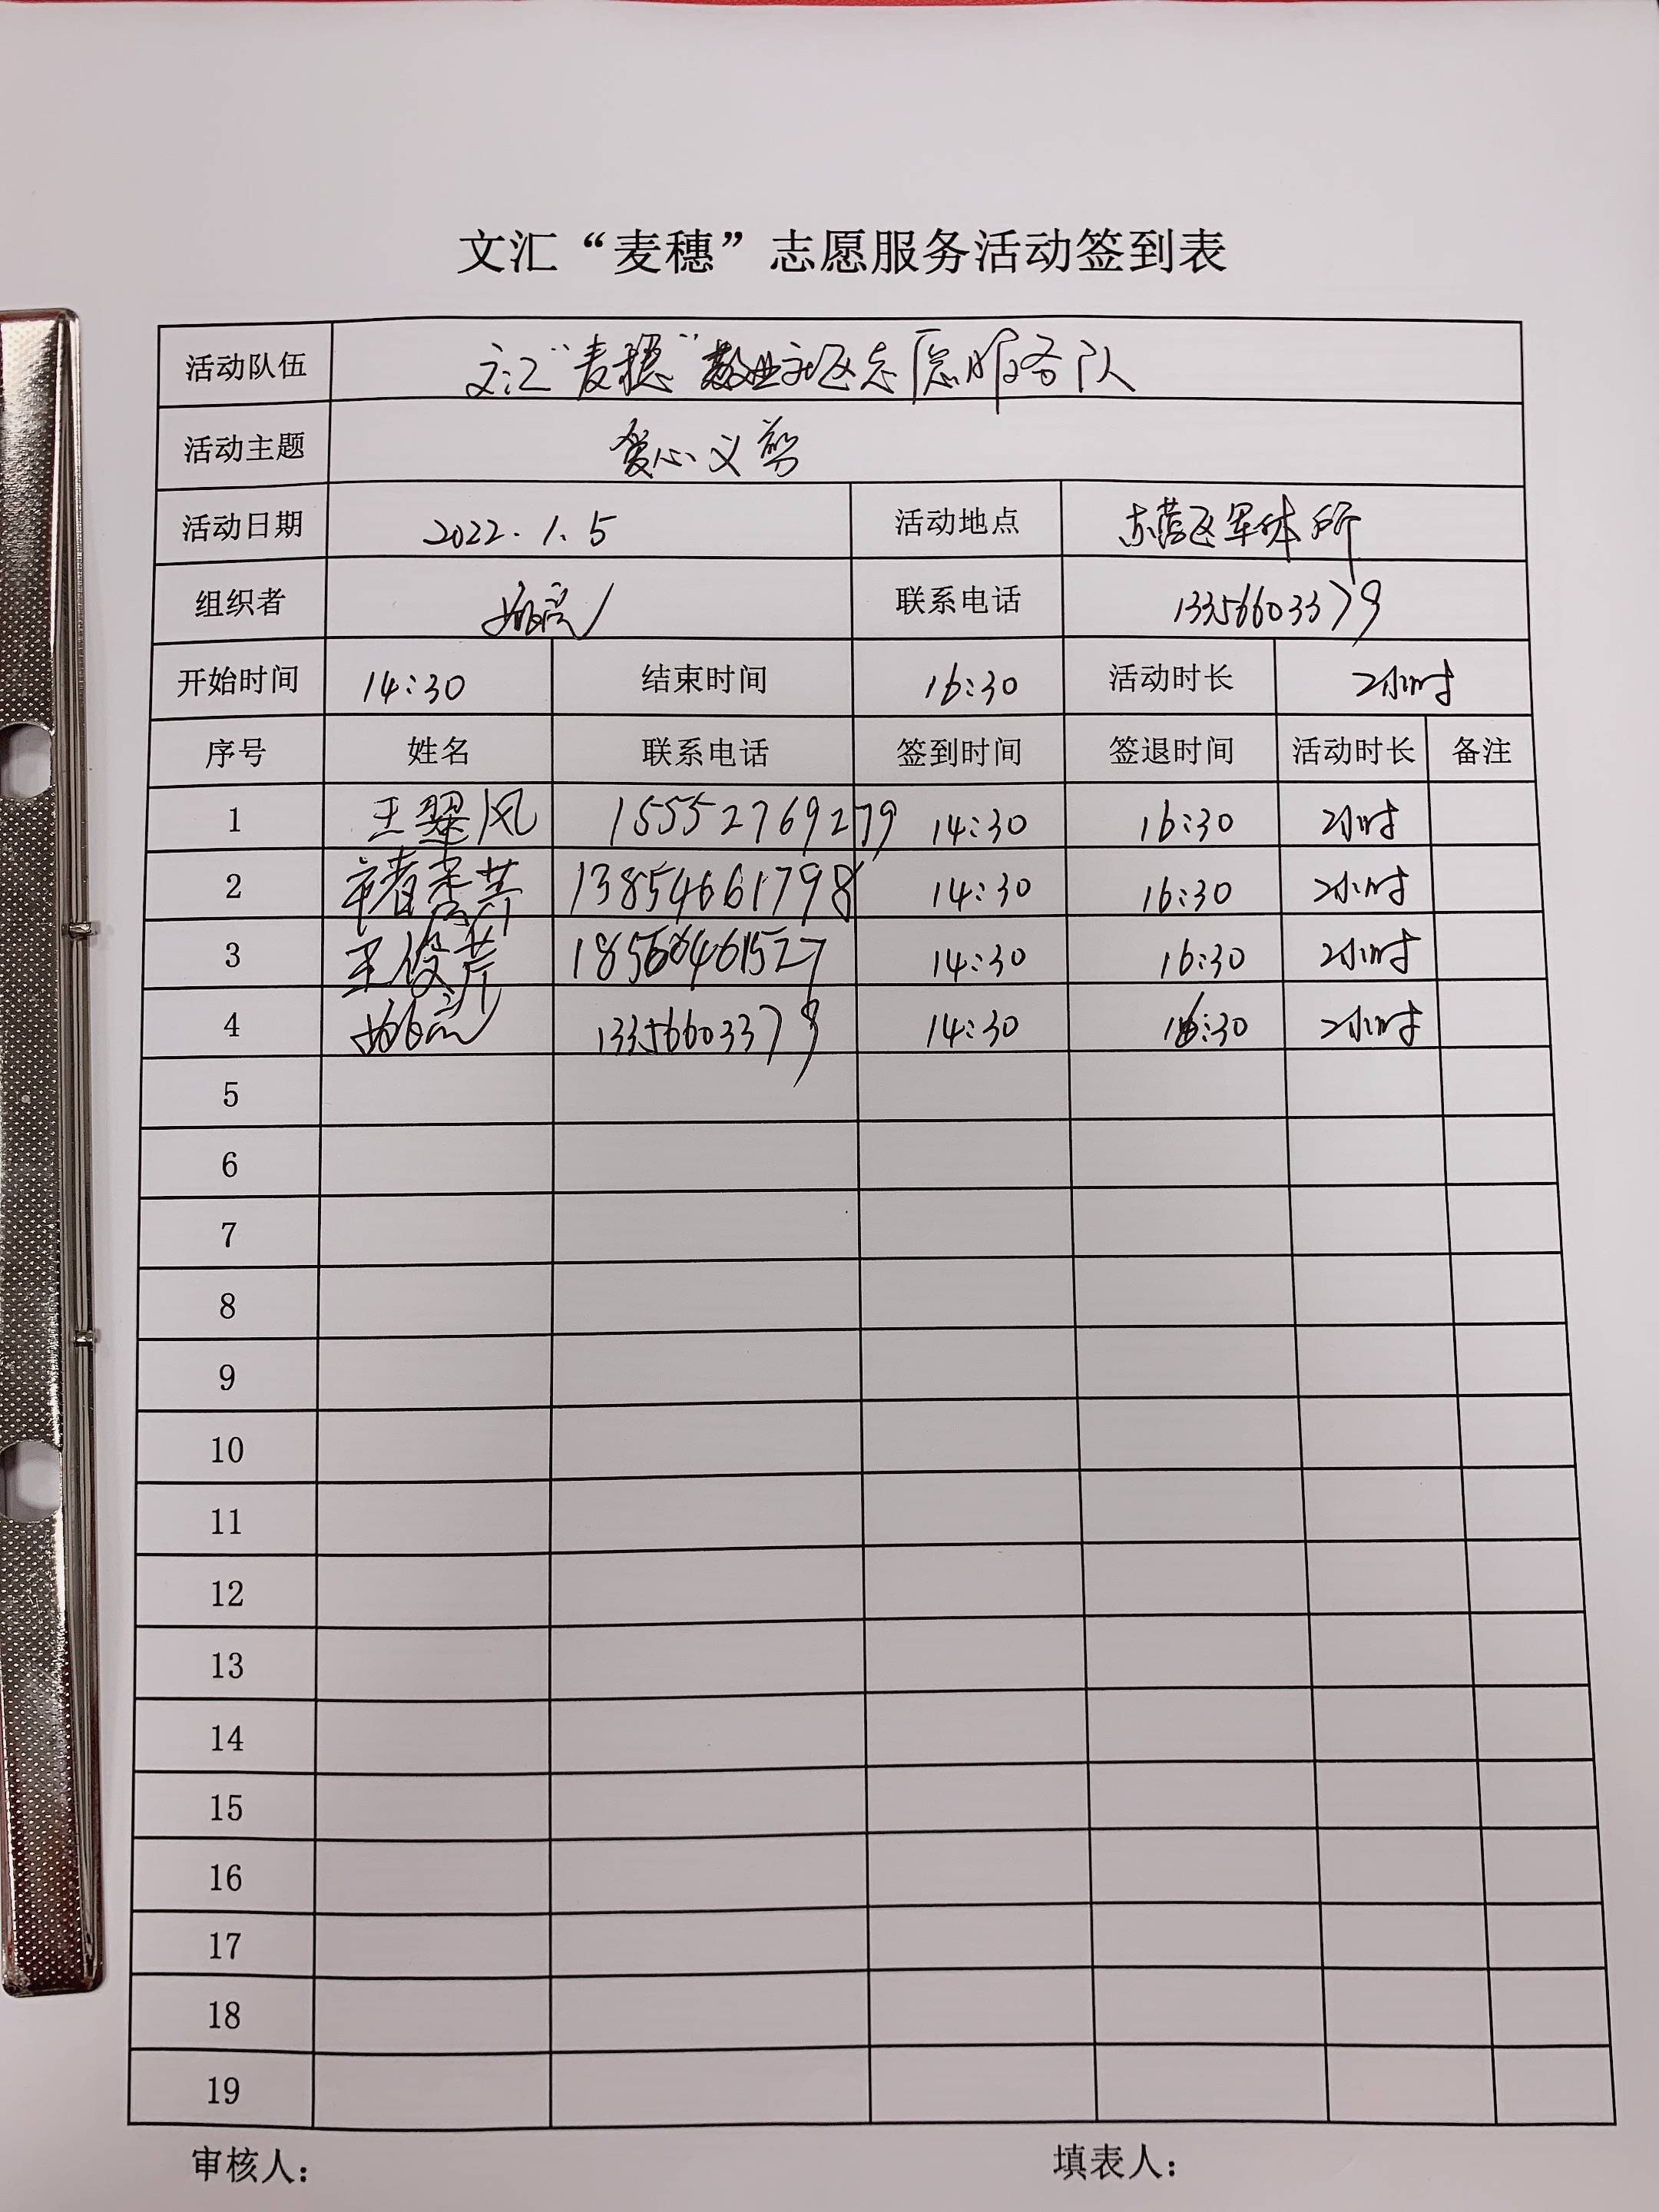 文汇“麦穗”志愿服务活动签到表
活动队伍 文汇“麦穗”敬业社区志愿服务队
活动主题 爱心义剪
活动日期 2022.1.5 活动地点 东营区军休所
组织者 姚亮 联系电话 13356603379
开始时间 14:30 结束时间 16:30 活动时长 2小时
序号 姓名 联系电话 签到时间 签退时间 活动时长 备注
1 王翠风 15552769279 14:30 16:30 2小时
2 13854661798 14:30 16:30 2小时
3 王俊芹 14:30 16:30 2小时
4 姚亮 13356603379 14:30 16:30 2小时
5
6
7
8
9
10
11
12
13
14
15
16
17
18
19
审核人： 填表人：